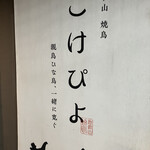 山 焼鳥
こけぴよ
親鳥ひな鳥、一緒に寛ぐ